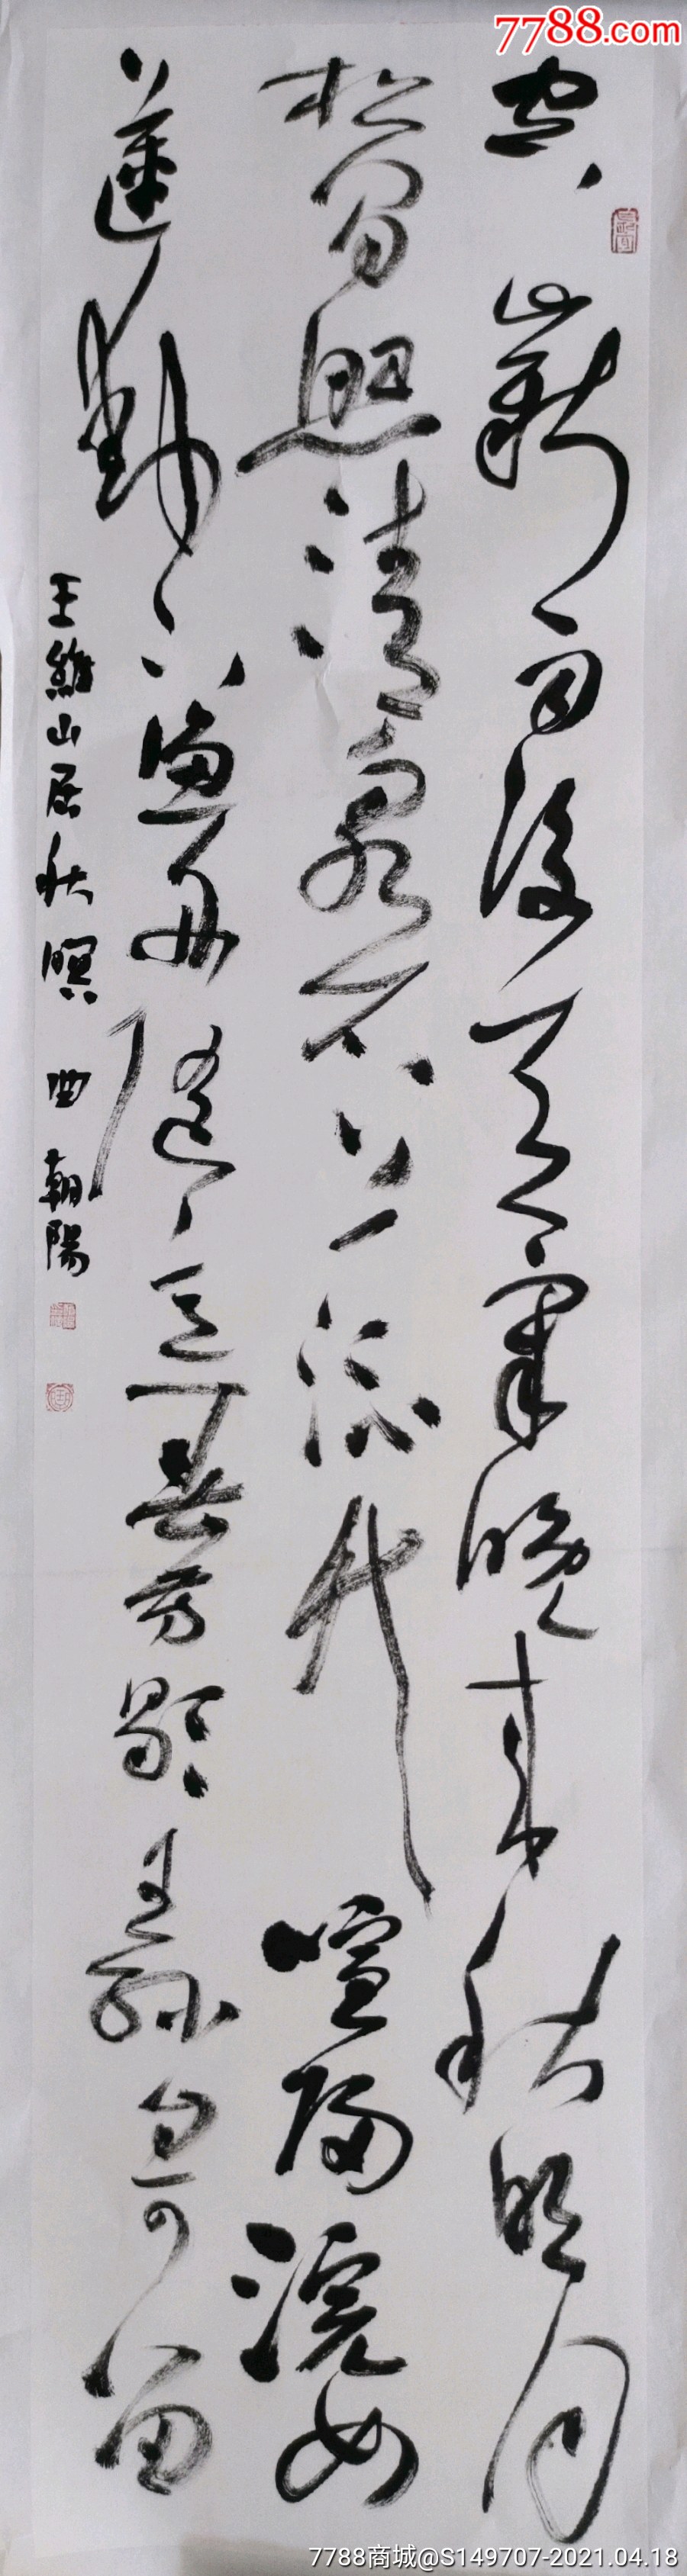 7788.com
空山新雨後天氣晚來秋明月
松間照清泉石上流竹喧歸浣女
蓮動下漁舟隨意春芳歇王孫自可留
王維山居秋暝 曲朝陽
7788商城@S149707-2021.04.18